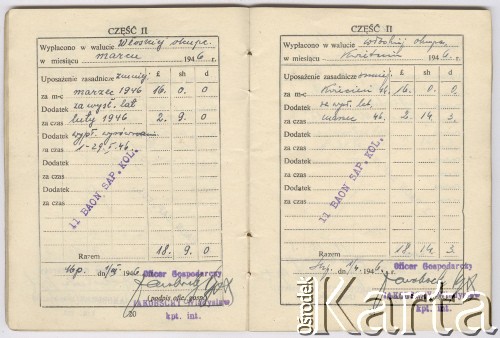 CZĘŚĆ II
Wypłacono w walucie Włoskiej okupc.
w miesiącu marcu 1946 r.
Uposażenie zasadnicze £ sh d
za m-c marzec 1946 16. 0. 0
Dodatek za wysł. lat
za czas luty 1946 2. 9. 0
Dodatek wypł.
za czas 1-29.
Dodatek
za czas
Dodatek
za czas
Dodatek
za czas
11 BAON SAP. KOL.
Razem 18. 9. 0
dn. 1946
Oficer Gospodarczy
(podpis ofic. gosp.)
kpt. int.
20
CZĘŚĆ II
Wypłacono w walucie włoskiej okup.
w miesiącu Kwietniu 1946 r.
Uposażenie zasadnicze £ sh d
za m-c Kwiecień 46. 16. 0. 0.
Dodatek za wysł. lat.
za czas marzec 46. 2. 14. 3.
Dodatek
za czas
Dodatek
za czas
Dodatek
za czas
Dodatek
za czas
11 BAON SAP. KOL.
Razem 18. 14. 3
dn. 1/4. 1946.
Oficer Gospodarczy
kpt. int.
Ośrodek
Karta